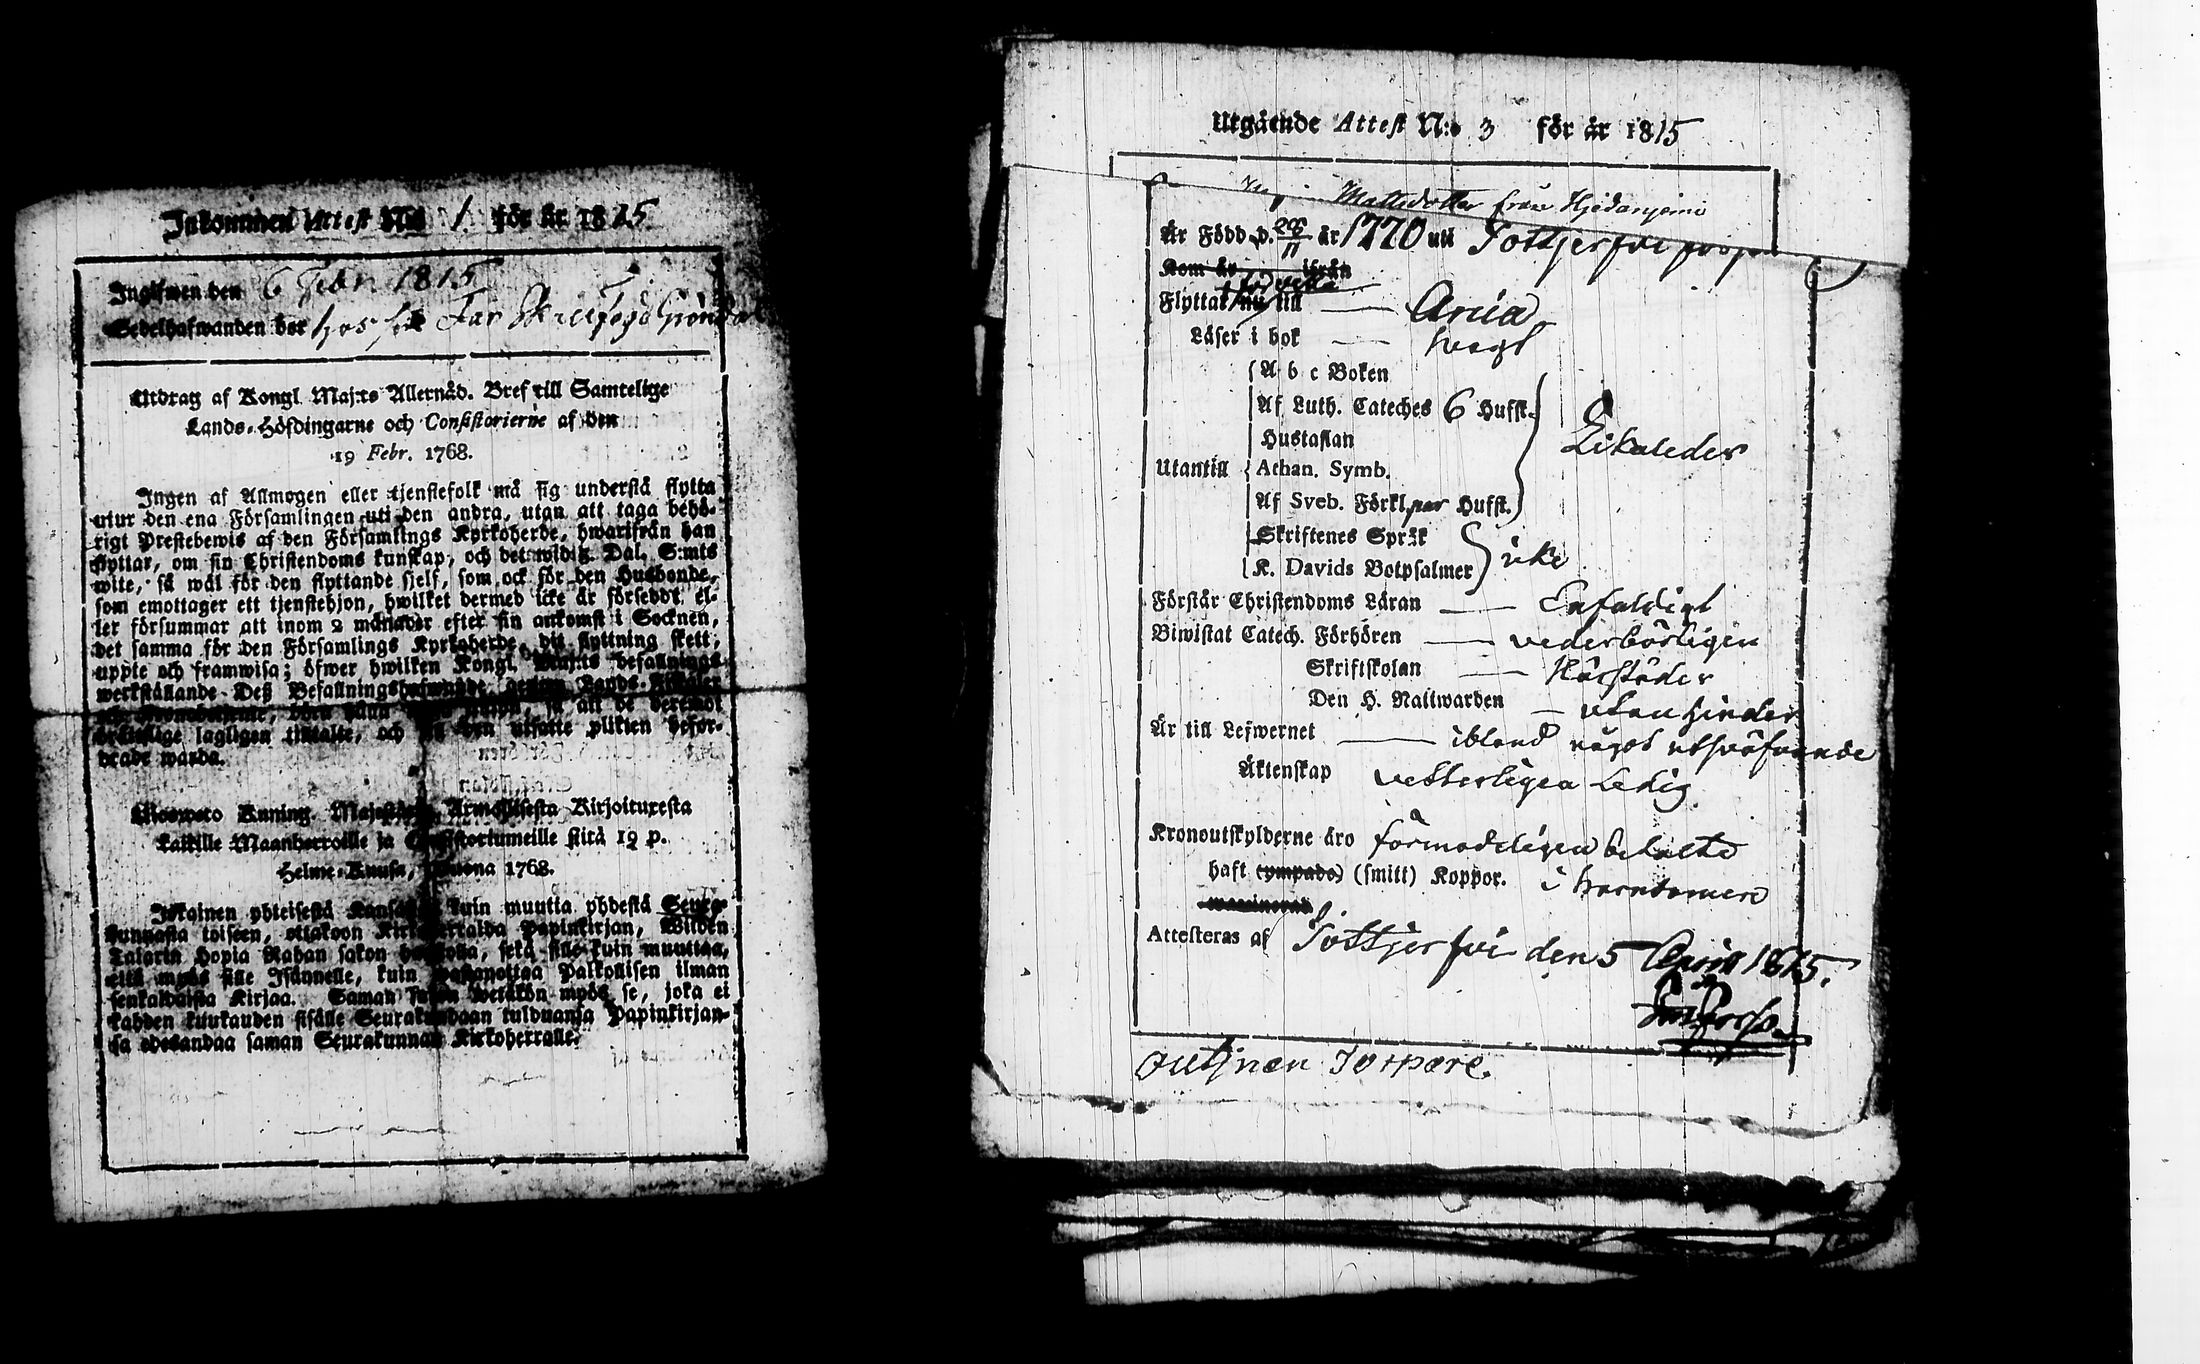 Inkommen Attest N:o 1 för år 1815
Ingifwen den 6 Febr. 1815
Sedelhafwanden bor hos
Utdrag af Kongl. Maj:ts Allernåd. Bref till Samtelige
Lands-Höfdingarne och Consistorierne af den
19 Febr. 1768.
Ingen af Allmogen eller tjenstefolk må sig understå flytta
utur den ena Församlingen uti den andra, utan att taga behö-
rigt Prestebewis af den Församlings Kyrkoherde, hwarifrån han
flyttar, om sin Christendoms kunskap, och det widtg Dal. S:mts
wite, så wäl för den flyttande sjelf, som ock för den Husbonde,
som emottager ett tjenstehjon, hwilket dermed icke är försedt, el-
ler försummar att inom 2 månader efter sin ankomst i Socknen,
det samma för den Församlings Kyrkoherde, dit flyttning skett,
uppte och framwisa; öfwer hwilken Kongl. Maj:ts befallnings
werkställande Deß Befallningshafwande genom Lands-Fiskaler
att de deremot
lagligen tilltalte, och utsatte plikten befor-
drade warda.
Uloswero Kuning. Majestetin Armollisesta Kirjoituxesta
kaikille Maanherroille ja Consistoriumeille siitä 19 p.
Helme-Kuusa, Wuona 1768.
Jokainen yhteisestä Kansasta kuin muutta yhdestä Seura-
kunnasta toiseen, ottakoon Kirkoherralda Papinkirjan, Wiiden
Talarin Hopia Rahan sakon haastolla, sekä sille kuin muuttaa,
että myös sille Isännelle, kuin wastanottaa Palkollisen ilman
senkaldaista Kirjaa. Saman wetäkön myös se, joka ei
kahden kuukauden sisälle Seurakundaan tulduansa Papinkirjan-
sa edesandaa saman Seurakunnan Kirkoherralle.
Utgående Attest N:o 3 för år 1815
Mattsdotter från
Är Född d. 28/11 år 1770 uti Sottjerfvi
Kom år ifrån
Flyttar nu till Ania
Läser i bok svagt
A b c Boken
Af Luth. Cateches 6 Hufst.
Hustaflan
Utantill Athan. Symb. Likaledes
Af Sveb. Förkl. par Hufst.
Skriftenes Språk
K. Davids Botpsalmer icke
Förstår Christendoms Läran Enfaldigt
Biwistat Catech. Förhören vederbörligen
Skriftskolan Härstädes
Den H. Nattwarden utan hinder
Är till Lefwernet ibland något utsväfvande
Äktenskap vetterligen Ledig
Kronoutskylderne äro förmodeligen betalte
haft (smitt) Koppor. i barndomen
Attesteras af Sottjerfvi den 5 April 1815.